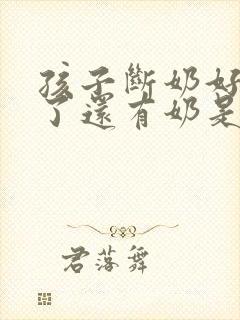 孩子断奶好
了还有奶是
君落舞